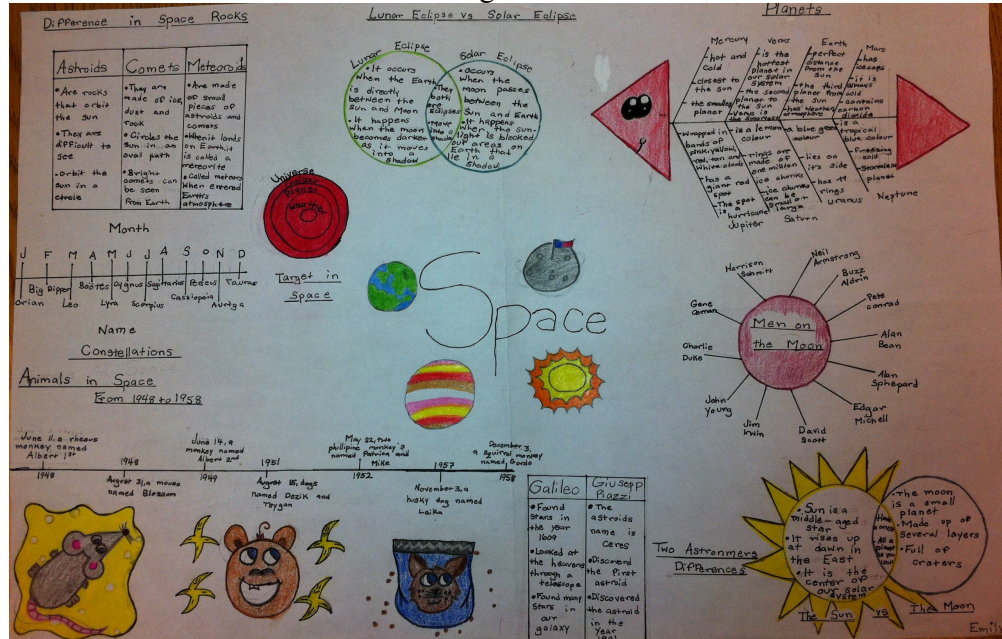 Difference in Space Rocks
Astroids
• Are rocks
that orbit
the sun
• They are
difficult to
see
• Orbit the
sun in a
circle
Comets
• They are
made of ice,
dust and
rook
• Circles the
sun in... an
oval path
• Bright
comets can
be seen
From Earth
Meteoroids
• Are made
of small
pieces of
astroids and
comets
• When it lands
on Earth it
is called a
meteorite
• Called meteors
When entered
Earth's
atmosphere
Lunar Eclipse vs Solar Eclipse
Lunar Eclipse
• It occurs
when the Earth
is directly
between the
sun and Moon
• It happens
when the moon
becomes darken
as it moves
into a
shadow
• They
both
are
Eclipses
• Move
into a
Solar Eclipse
• occurs
when the
moon passes
between the
Sun and Earth
• It happens
when the sun-
light is blocked
out areas on
Earth that
lie in a
shadow
Planets
Mercury
• hot and
cold
closest to
the sun
the smallest
planet
Venus
• is the
hottest
planet in
our solar
system
the second
planet to
the sun
Earth
• perfect
distance
from the
sun
• the third
planet from
the sun
• has weather,
atmosphere
Mars
• has
icecaps
• it is
always
cold
• contains
carbon
dioxide
• wrapped in
bands of
pink, yellow,
red, tan and
white clouds
• has a
giant red
spot
• The spot
is a
hurricane
Jupiter
• is a lemon
colour
• rings are
made of
one million
ice chunks
• ice chunks
can be
small or
large
Saturn
a blue green
colour
• lies on
it's side
• has 11
rings
Uranus
• is a
tropical
blue colour
• Freezing
cold
• Stormiest
planet
Neptune
Universe
Galaxy
Planet
Weather
Target in
Space
Month
J F M A M J J A S O N D
Orian
Big Dipper
Leo
Boötes
Lyra
Cygnus
Scorpius
Sagittarius
Cassiopeia
Auriga
Taurus
Name
Constellations
Space
Men on
the Moon
Neil
Armstrong
Buzz
Aldrin
Pete
Conrad
Alan
Bean
Alan
Sphepard
Edgar
Michell
David
Scott
Jim
Irwin
John
Young
Charlie
Duke
Gene
Cernan
Harrison
Schmitt
Animals in Space
From 1948 to 1958
June 11, a rhesus
monkey named
Albert 1st
1948
1948
August 31, a mouse
named Blossom
June 14, a
monkey named
Albert 2nd
1949
1951
August 15, dogs
named Dezik and
Tsygan
May 22, two
phillipine monkey's
named Patrica and
Mike
1952
1957
November 3, a
husky dog named
Laika
December 3,
a squirrel monkey
named Gordo
1958
Galileo
• Found
stars in
the year
1609
• Looked at
the heavens
through a
telescope
• Found many
Stars in
our
galaxy
Giusepp
Piazzi
• The
astroids
name is
Ceres
• Discovered
the first
astroid
• Discovered
the astroid
in the
year
1801
Two Astronmers
Differences
• Sun is a
middle-aged
star
• It rises up
at dawn in
the East
• It is the
center of
our solar
system
• The moon
is a small
planet
• Made up of
several layers
• Full of
craters
The Sun vs The Moon
Emily